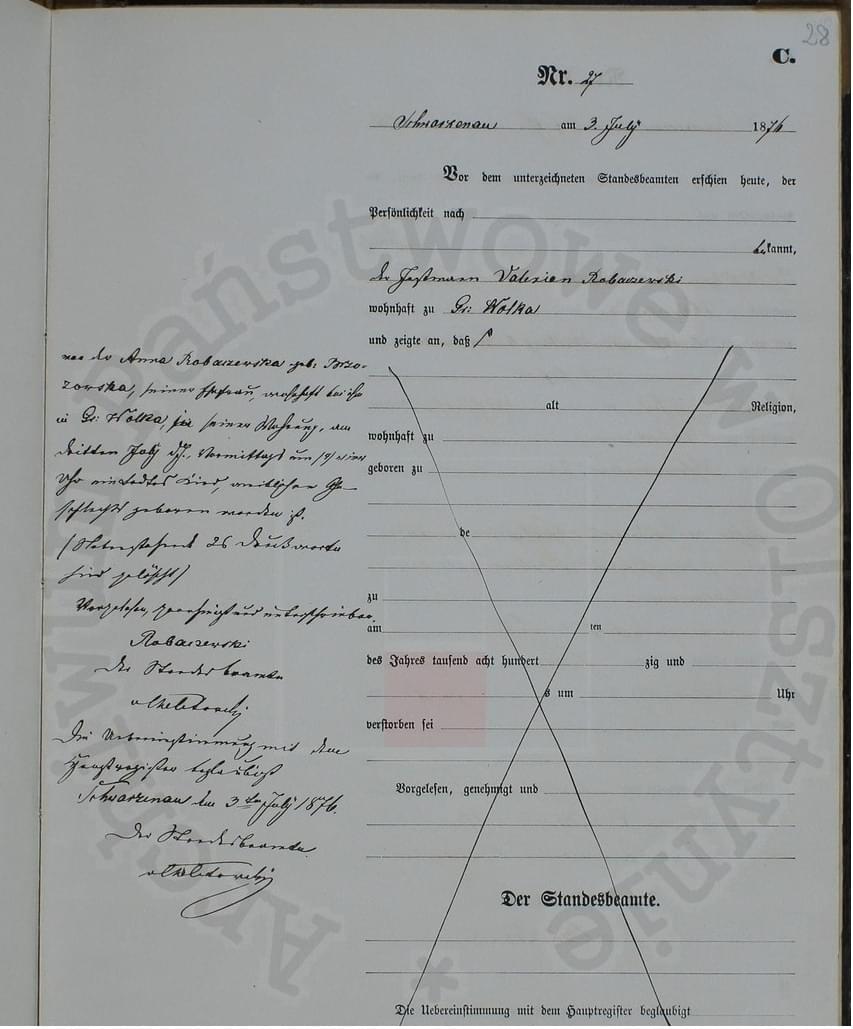 28
C.
Nr. 27
Schwarzenau am 3. July 1876
Vor dem unterzeichneten Standesbeamten erschien heute, der
Persönlichkeit nach
bekannt,
der Valerian Robaczewski
wohnhaft zu Gr: Wolka
und zeigte an, daß
alt Religion,
wohnhaft zu
geboren zu
de
zu
am ten
des Jahres tausend acht hundert zig und
s um Uhr
verstorben sei
Vorgelesen, genehmigt und
Der Standesbeamte.
Die Uebereinstimmung mit dem Hauptregister beglaubigt
von der Anna Robaczewska geb: Brzo-
zowska, seiner Ehefrau, wohnhaft bei ihm
in Gr: Wolka, in seiner Wohnung, am
dritten July Vormittags um
Uhr ein todtes Kind, weiblichen Ge-
schlechts geboren worden ist.
26 Druckworte
sind gelöscht/
Vorgelesen, genehmigt und unterschrieben.
Robaczewski
Der Standesbeamte
Die Uebereinstimmung mit dem
Hauptregister beglaubigt
Schwarzenau den 3ten July 1876.
Der Standesbeamte
Archiwum Państwowe w Olsztynie *